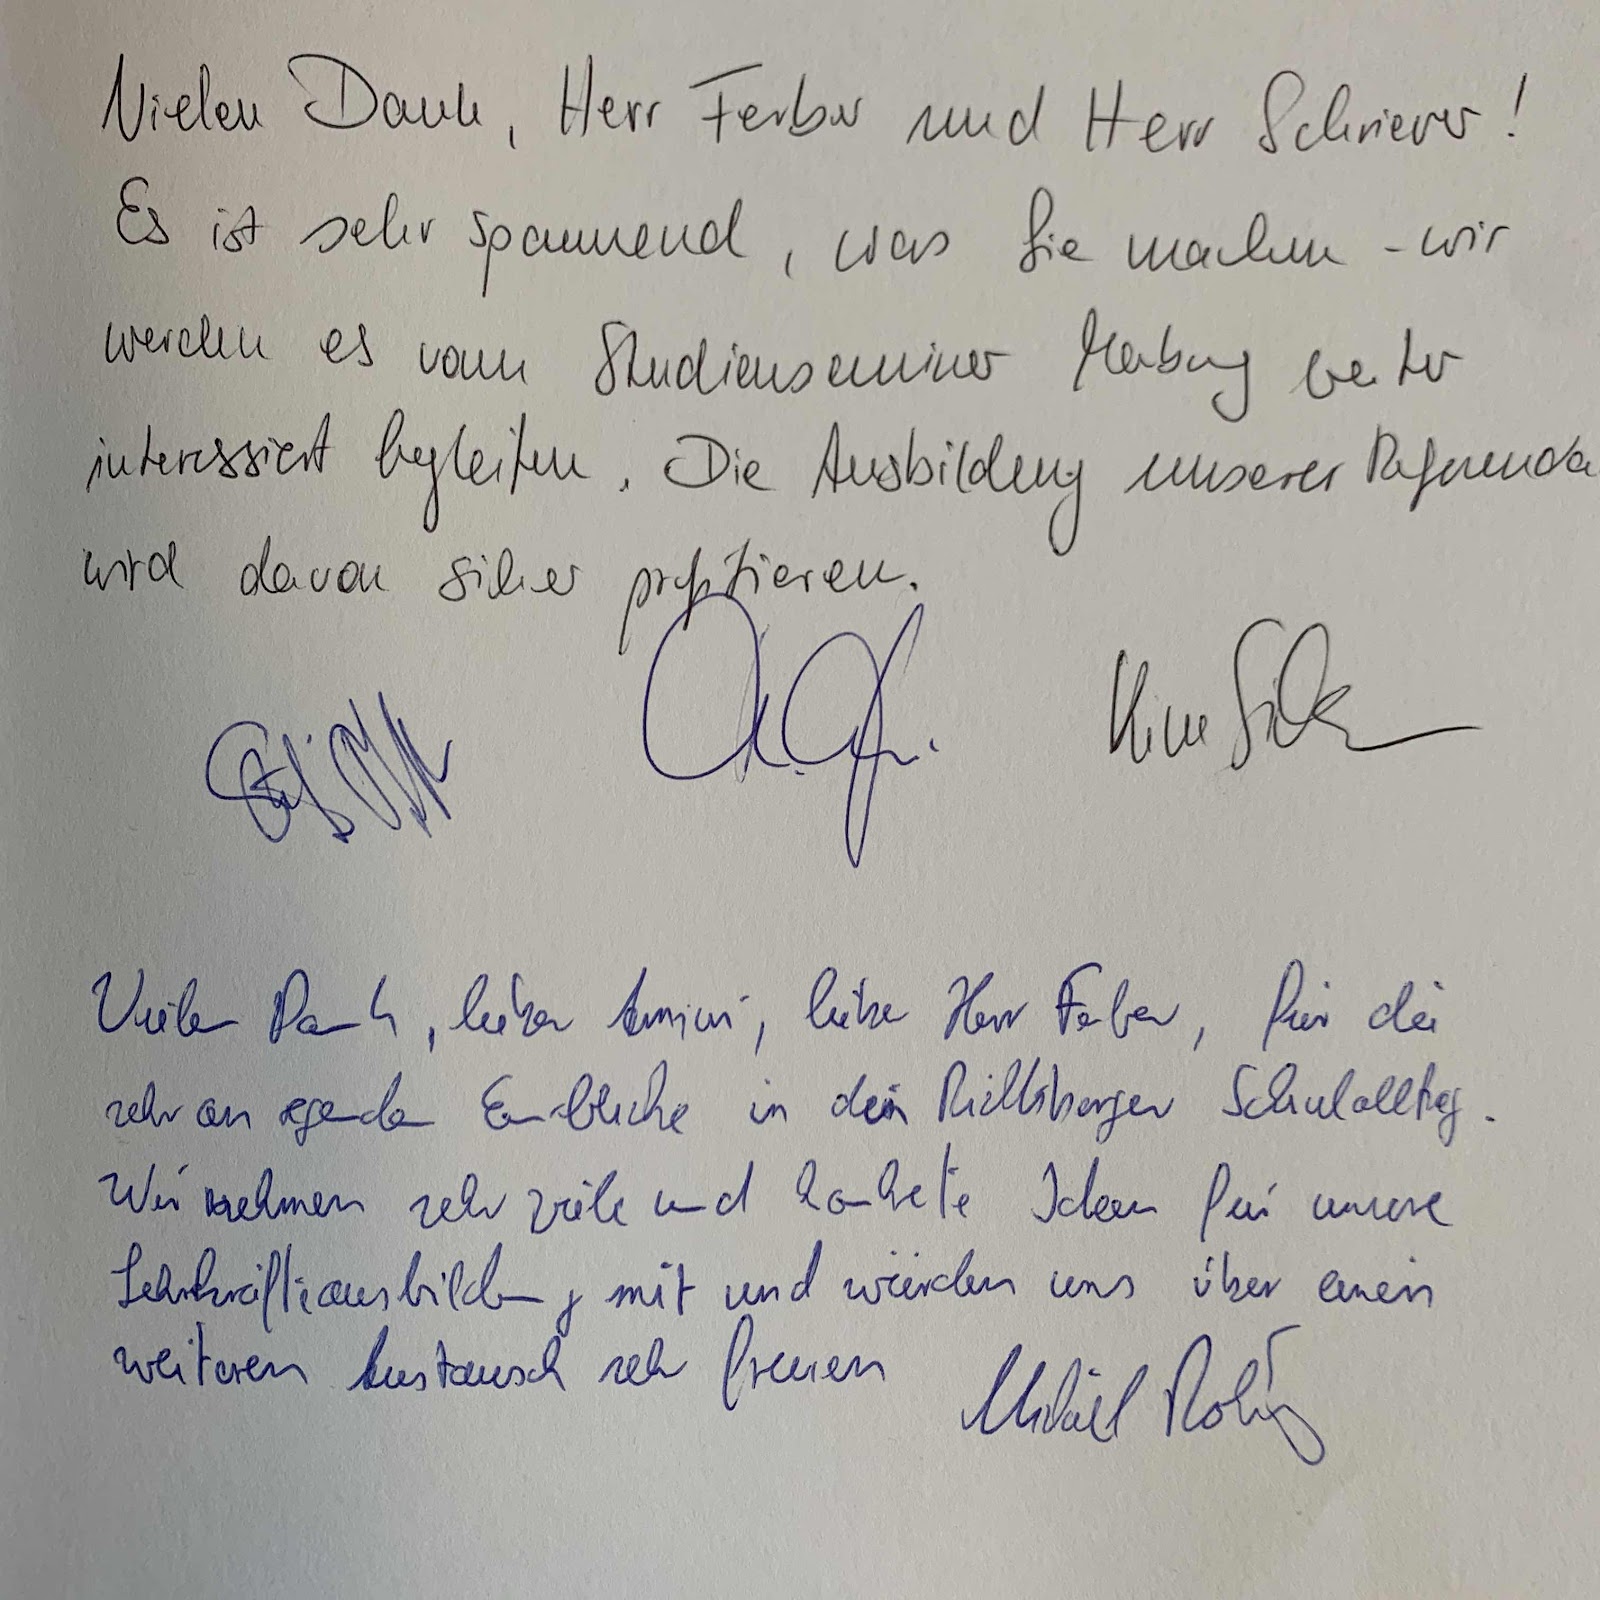 Vielen Dank, Herr Ferber und Herr Schriever!
Es ist sehr spannend, was Sie machen - wir
werden es vom Studienseminar Marburg weiter
interessiert begleiten. Die Ausbildung unserer Referenda
wird davon sicher profitieren.
Vielen Dank, lieber, lieber Herr Ferber, für die
sehr anregenden Einblicke in den Richtsberger Schulalltag.
Wir nehmen sehr viele und konkrete Ideen für unsere
Lehrkräfteausbildung mit und würden uns über einen
weiteren Austausch sehr freuen